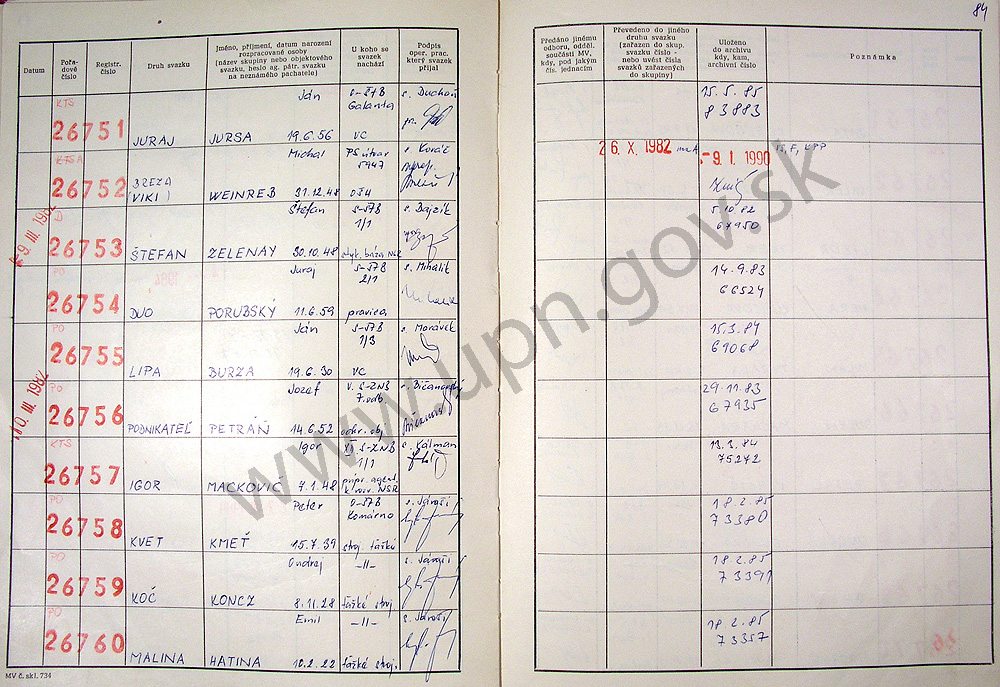 84
Datum
Pořadové číslo
Registr. číslo
Druh svazku
Jméno, příjmení, datum narození rozpracované osoby (název skupiny nebo objektového svazku, heslo ag. pátr. svazku na neznámého pachatele)
U koho se svazek nachází
Podpis oper. prac. který svazek přijal
Předáno jinému odboru, odděl. součásti MV, kdy, pod jakým čís. jednacím
Převedeno do jiného druhu svazku (zařazen do skup. svazku číslo - nebo uvést čísla svazků zařazených do skupiny)
Uloženo do archivu kdy, kam, archivní číslo
Poznámka
KTS
26751 JURAJ JURSA Ján 19.6.56 O-ŠTB Galanta VC s. Duchoň
15.5.85
83883
26752 BREZA (VIKI) WEINREB Michal 31.12.48 PS útvar 5947 s. Kováč
26.X.1982
-9.I.1990
-9.III.1982
26753 ŠTEFAN ZELENAY Štefan 30.10.48 S-ŠTB 1/1 s. Bajzík
5.10.82
67950
PO
26754 DUO PORUBSKÝ Juraj 11.6.59 S-ŠTB 2/1 pravica s. Mihalik
14.9.83
66524
PO
26755 LIPA BURZA Ján 19.6.30 S-ŠTB 1/3 VC s. Morávek
15.3.84
69068
10.III.1982
PO
26756 PODNIKATEĽ PETRÁŇ Jozef 14.6.52 V. S-ZNB 7.odb.
29.11.83
67935
KTS
26757 IGOR MACKOVIČ Igor 7.1.48 XII S-ZNB 1/1 s. Kálman
75242
PO
26758 KVET KMEŤ Peter 15.7.39 O-ŠTB Komárno stroj. ťažké s. Jároši
18.2.85
73380
PO
26759 KOČ KONCZ Ondrej 8.11.28 -||- ťažké stroj. s. Jároši
18.2.85
73391
PO
26760 MALINA HATINA Emil 10.2.22 -||- ťažké stroj. s. Jároši
18.2.85
73357
MV č. skl. 734
www.upn.gov.sk